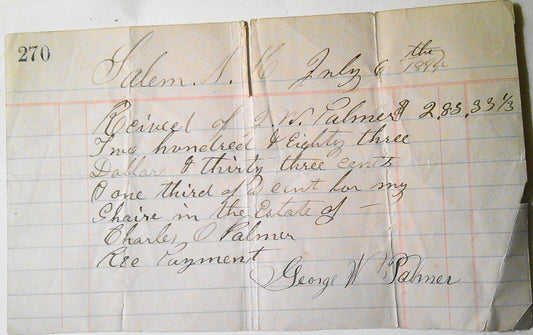 270
Salem. N. H July 6 the
Reiived of D. W. Palmer $ 2,83,33 1/3
Two hundred & Eighty three
Dollars & thirty three cents
& one third of a cent for my
Shaire in the Estate of —
Charles O Palmer
Rec Payment
George W. Palmer